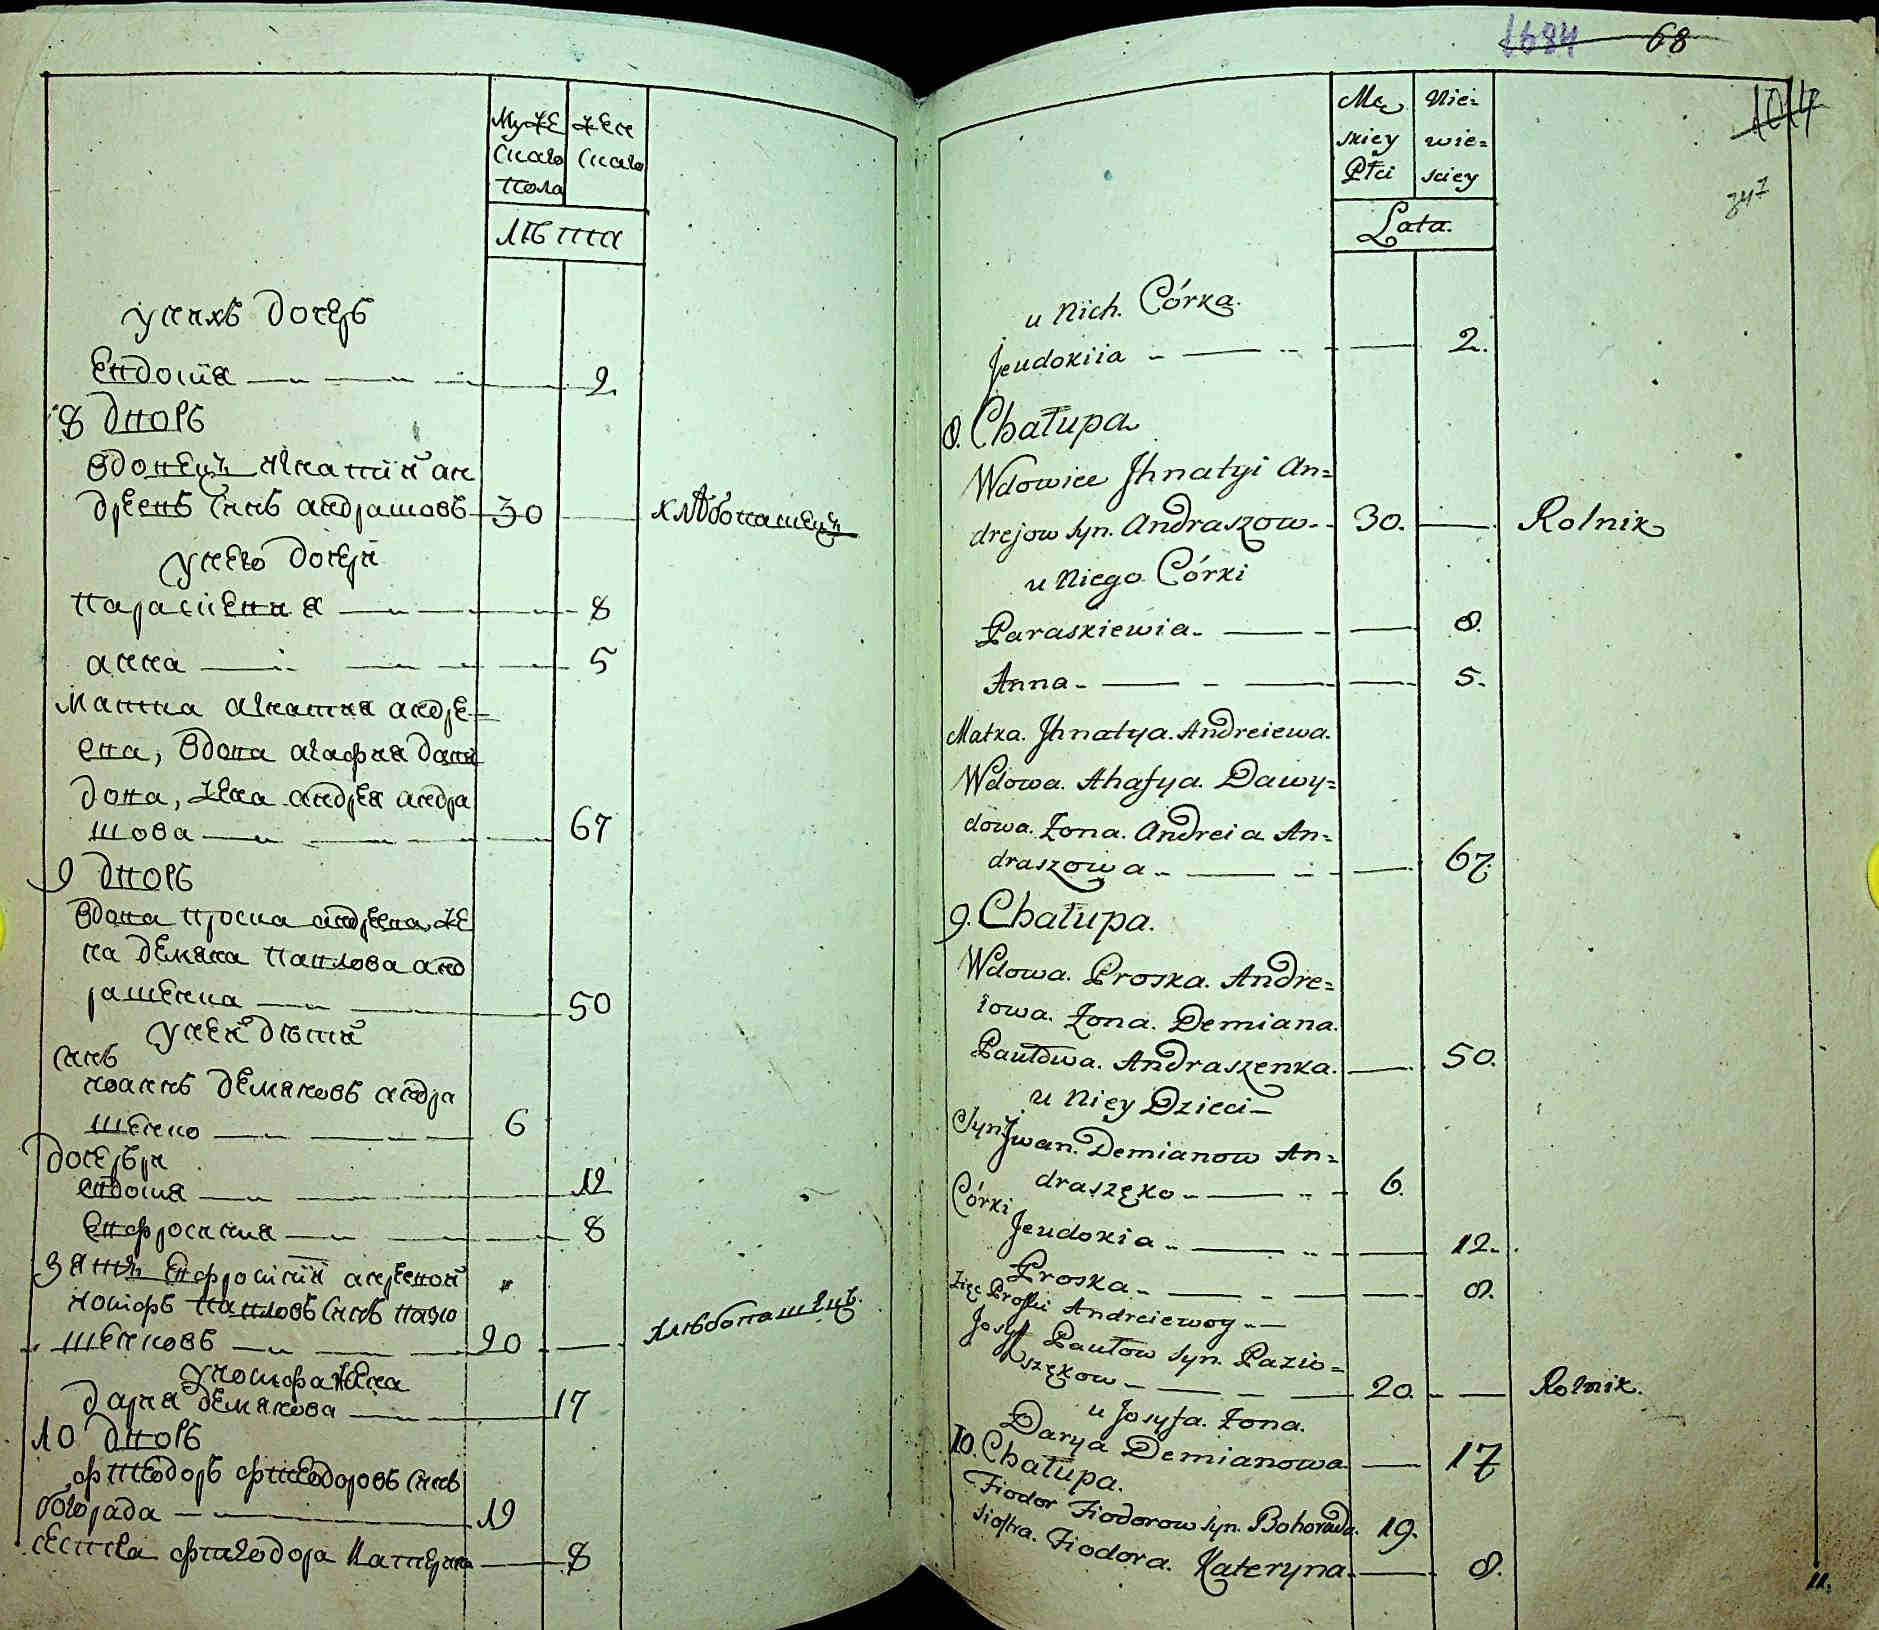 Муже
скаго
пола
Жен
скаго
лѣта
у нихъ дочерь
Евдокия 2
8 дворъ
вдовецъ игнатий ан
дреевъ сынъ андрашовъ 30 хлѣбопашецъ
у него дочери
параскевия 8
анна 5
матка игнатия андре
ева, вдова агафия давы
дова, жена андрея андра
шова 67
9 дворъ
вдова проска андреева же
на демяна павлова анд
рашенка 50
у ней дѣти
сынъ
иоаннъ демяновъ андра
шенко 6
дочери
евдокия 12
евфросиния 8
зять евфросинии андреевой
иосифъ павловъ сынъ пазю
шенковъ 20 хлѣбопашецъ.
у иосифа жена
дария демянова 17
10 дворъ
феодоръ феодоровъ сынъ
богорада 19
сестра феодора катерина 8
1684 68
104
347
Mę
skiey
Płci
Nie=
wie=
sciey
Lata.
u Nich. Córka.
Jeudokiia 2.
8. Chałupa
Wdowiec Jhnatyi An=
drejow syn. Andraszow 30. Rolnik
u Niego Córki
Paraskiewia 8.
Anna 5.
Matka. Jhnatya. Andreiewa.
Wdowa. Ahafya. Dawy=
dowa. Żona. Andreia An=
draszowa 67.
9. Chałupa.
Wdowa. Proska. Andre=
iowa. Żona. Demiana.
Pawłowa. Andraszenka. 50.
u Niey Dzieci
Syn. Jwan. Demianow An=
draszęko 6.
Córki
Jeudokia 12.
Proska 8.
Zięć Proski Andreiewoy
Josyf Pawłow syn. Pazio=
szękow 20. Rolnik.
u Josyfa. Żona.
Darya Demianowa 17
10. Chałupa.
Fiodor Fiodorow syn. Bohorada. 19.
siostra. Fiodora. Kateryna. 8.
11.